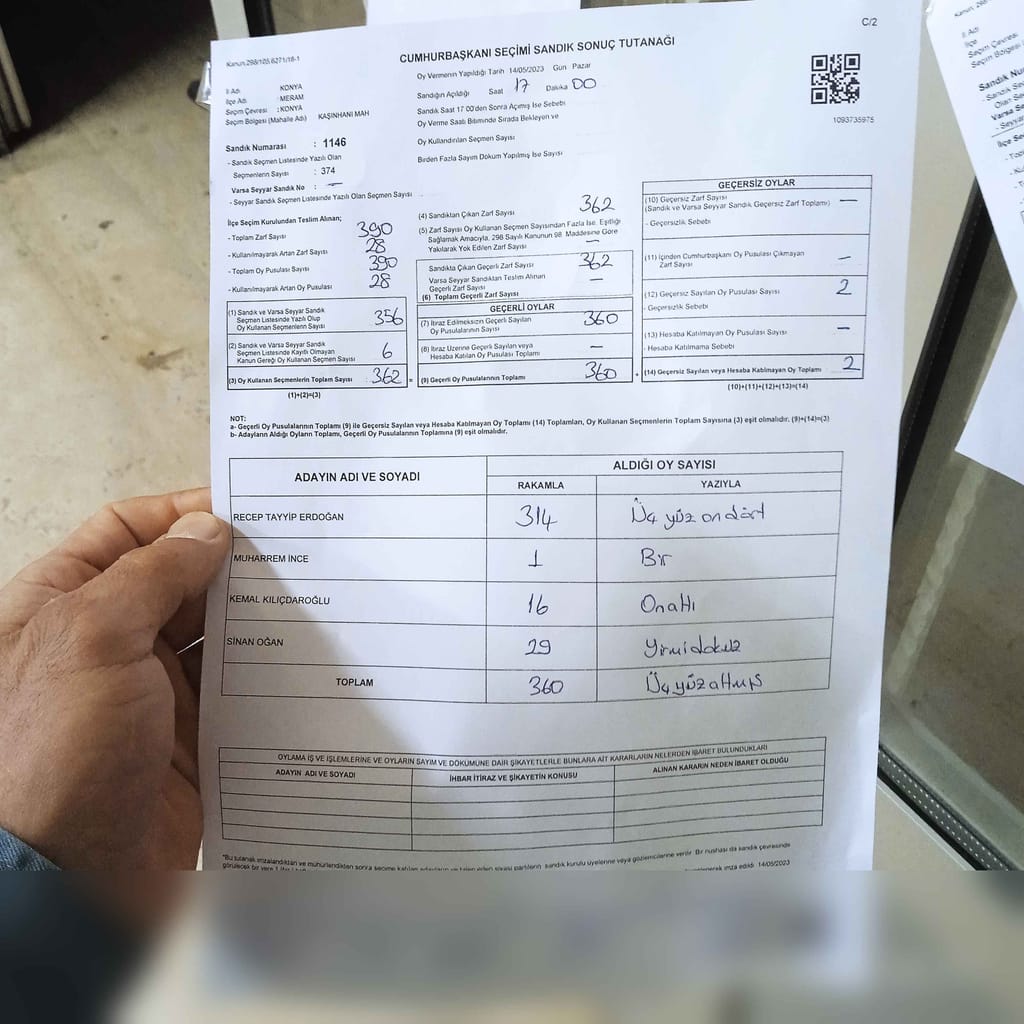 C/2
Kanun.298/105.6271/16-1
CUMHURBAŞKANI SEÇİMİ SANDIK SONUÇ TUTANAĞI
İl Adı : KONYA
İlçe Adı : MERAM
Seçim Çevresi : KONYA
Seçim Bölgesi (Mahalle Adı) KAŞINHANI MAH
Sandık Numarası : 1146
- Sandık Seçmen Listesinde Yazılı Olan
Seçmenlerin Sayısı : 374
Varsa Seyyar Sandık No : —
- Seyyar Sandık Seçmen Listesinde Yazılı Olan Seçmen Sayısı
Oy Vermenin Yapıldığı Tarih 14/05/2023 Gün Pazar
Sandığın Açıldığı Saat 17 Dakika 00
Sandık Saat 17 00'den Sonra Açımış İse Sebebi
Oy Verme Saati Bitiminde Sırada Bekleyen ve
Oy Kullandırılan Seçmen Sayısı
Birden Fazla Sayım Döküm Yapılmış İse Sayısı
1093735975
İlçe Seçim Kurulundan Teslim Alınan;
- Toplam Zarf Sayısı 390
- Kullanılmayarak Artan Zarf Sayısı 28
- Toplam Oy Pusulası Sayısı 390
- Kullanılmayarak Artan Oy Pusulası 28
(1) Sandık ve Varsa Seyyar Sandık
Seçmen Listesinde Yazılı Olup
Oy Kullanan Seçmenlerin Sayısı 356
(2) Sandık ve Varsa Seyyar Sandık
Seçmen Listesinde Kayıtlı Olmayan
Kanun Gereği Oy Kullanan Seçmen Sayısı 6
(3) Oy Kullanan Seçmenlerin Toplam Sayısı 362 =
(1)+(2)=(3)
(4) Sandıktan Çıkan Zarf Sayısı 362
(5) Zarf Sayısı Oy Kullanan Seçmen Sayısından Fazla İse, Eşitliği
Sağlamak Amacıyla, 298 Sayılı Kanunun 98. Maddesine Göre
Yakılarak Yok Edilen Zarf Sayısı —
Sandıkta Çıkan Geçerli Zarf Sayısı 362
Varsa Seyyar Sandıktan Teslim Alınan
Geçerli Zarf Sayısı —
(6) Toplam Geçerli Zarf Sayısı
GEÇERLİ OYLAR
(7) İtiraz Edilmeksizin Geçerli Sayılan
Oy Pusulalarının Sayısı 360
(8) İtiraz Üzerine Geçerli Sayılan veya
Hesaba Katılan Oy Pusulası Toplamı —
(9) Geçerli Oy Pusulalarının Toplamı 360 +
GEÇERSİZ OYLAR
(10) Geçersiz Zarf Sayısı
(Sandık ve Varsa Seyyar Sandık Geçersiz Zarf Toplamı) —
- Geçersizlik Sebebi
(11) İçinden Cumhurbaşkanı Oy Pusulası Çıkmayan
Zarf Sayısı —
(12) Geçersiz Sayılan Oy Pusulası Sayısı 2
- Geçersizlik Sebebi
(13) Hesaba Katılmayan Oy Pusulası Sayısı —
- Hesaba Katılmama Sebebi
(14) Geçersiz Sayılan veya Hesaba Katılmayan Oy Toplamı 2
(10)+(11)+(12)+(13)=(14)
NOT:
a- Geçerli Oy Pusulalarının Toplamı (9) ile Geçersiz Sayılan veya Hesaba Katılmayan Oy Toplamı (14) Toplamları, Oy Kullanan Seçmenlerin Toplam Sayısına (3) eşit olmalıdır. (9)+(14)=(3)
b- Adayların Aldığı Oyların Toplamı, Geçerli Oy Pusulalarının Toplamına (9) eşit olmalıdır.
ADAYIN ADI VE SOYADI ALDIĞI OY SAYISI
RAKAMLA YAZIYLA
RECEP TAYYİP ERDOĞAN 314 Üç yüz ondört
MUHARREM İNCE 1 Bir
KEMAL KILIÇDAROĞLU 16 Onaltı
SİNAN OĞAN 29 Yirmidokuz
TOPLAM 360 Üçyüzaltmış
OYLAMA İŞ VE İŞLEMLERİNE VE OYLARIN SAYIM VE DÖKÜMÜNE DAİR ŞİKAYETLERLE BUNLARA AİT KARARLARIN NELERDEN İBARET BULUNDUKLARI
ADAYIN ADI VE SOYADI İHBAR İTİRAZ VE ŞİKAYETİN KONUSU ALINAN KARARIN NEDEN İBARET OLDUĞU
"Bu tutanak imzalandıktan ve mühürlendikten sonra seçime katılan adayların ve talep eden siyasi partilerin sandık kurulu üyelerine veya gözlemcilerine verilir. Bir nüshası da sandık çevresinde
imza edildi 14/05/2023